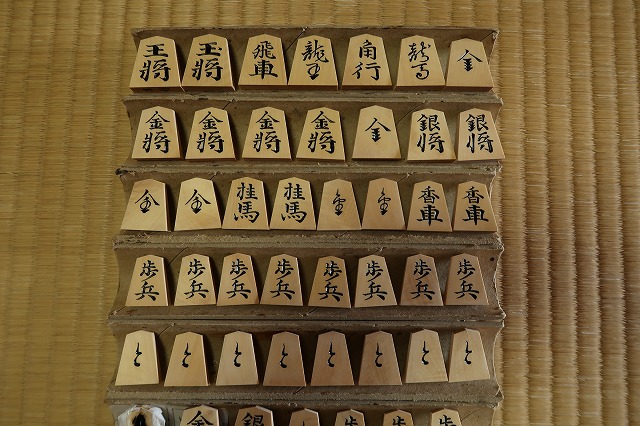 王將 玉將 飛車 龍王 角行 龍馬 全
金將 金將 金將 金將 全 銀將 銀將
全 全 桂馬 桂馬 圭 圭 香車 香車
歩兵 歩兵 歩兵 歩兵 歩兵 歩兵 歩兵 歩兵
と と と と と と と と